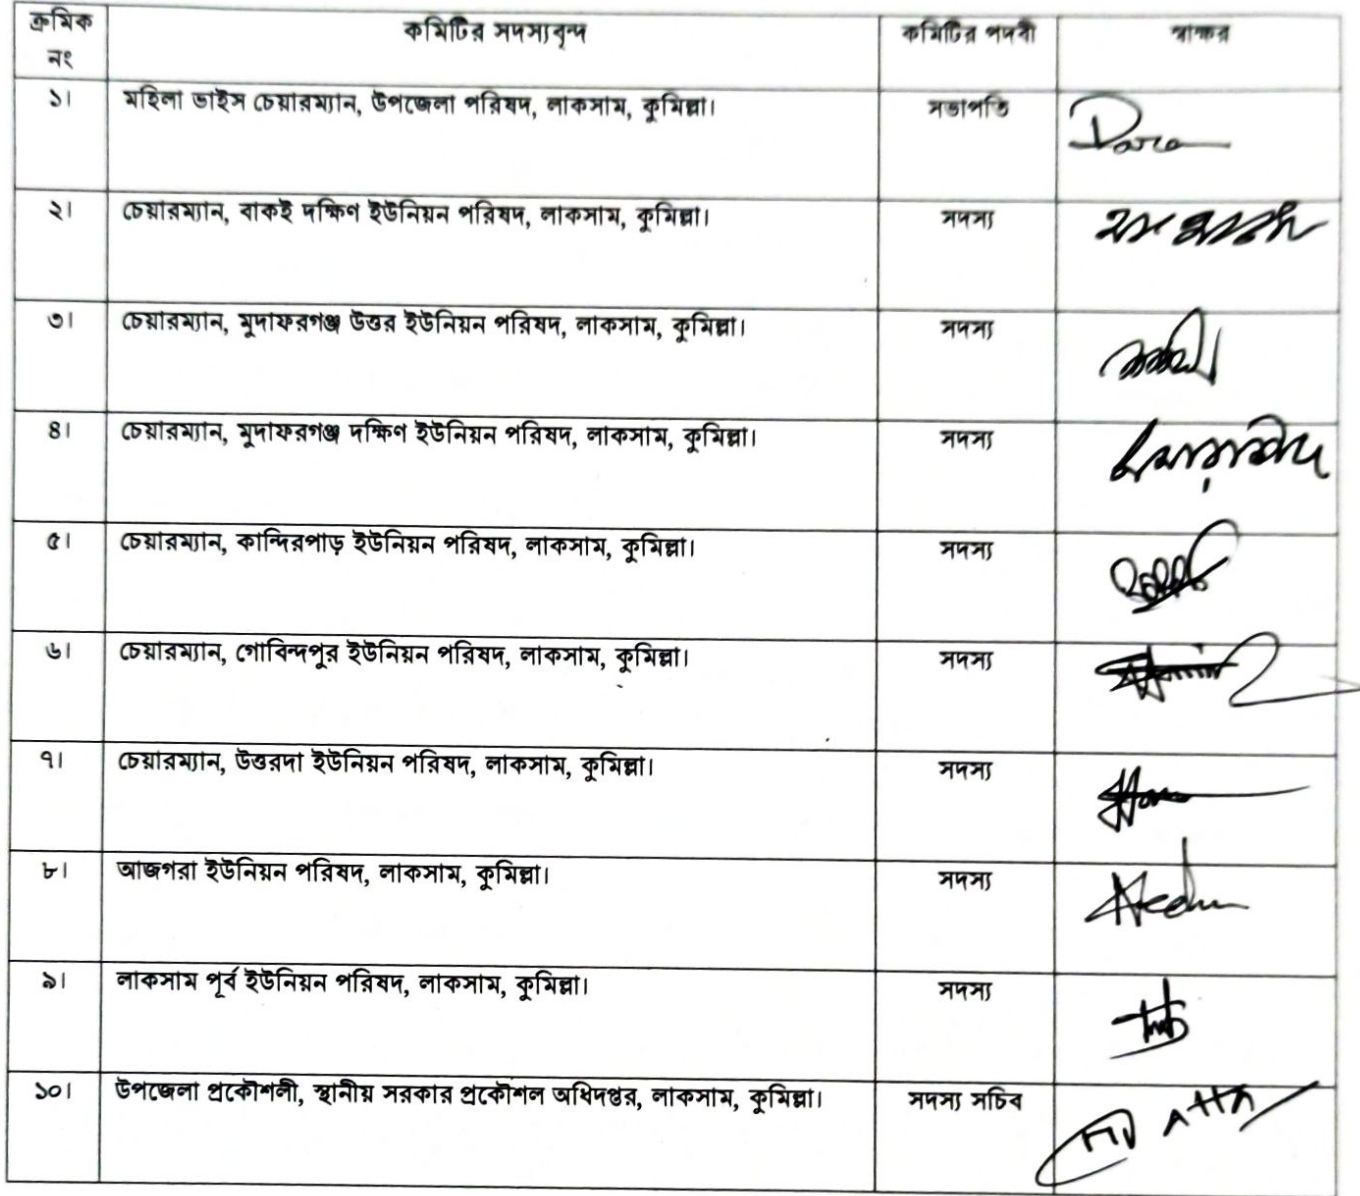 ক্রমিক নং কমিটির সদস্যবৃন্দ কমিটির পদবী স্বাক্ষর
১। মহিলা ভাইস চেয়ারম্যান, উপজেলা পরিষদ, লাকসাম, কুমিল্লা। সভাপতি
২। চেয়ারম্যান, বাকই দক্ষিণ ইউনিয়ন পরিষদ, লাকসাম, কুমিল্লা। সদস্য
৩। চেয়ারম্যান, মুদাফরগঞ্জ উত্তর ইউনিয়ন পরিষদ, লাকসাম, কুমিল্লা। সদস্য
৪। চেয়ারম্যান, মুদাফরগঞ্জ দক্ষিণ ইউনিয়ন পরিষদ, লাকসাম, কুমিল্লা। সদস্য
৫। চেয়ারম্যান, কান্দিরপাড় ইউনিয়ন পরিষদ, লাকসাম, কুমিল্লা। সদস্য
৬। চেয়ারম্যান, গোবিন্দপুর ইউনিয়ন পরিষদ, লাকসাম, কুমিল্লা। সদস্য
৭। চেয়ারম্যান, উত্তরদা ইউনিয়ন পরিষদ, লাকসাম, কুমিল্লা। সদস্য
৮। আজগরা ইউনিয়ন পরিষদ, লাকসাম, কুমিল্লা। সদস্য
৯। লাকসাম পূর্ব ইউনিয়ন পরিষদ, লাকসাম, কুমিল্লা। সদস্য
১০। উপজেলা প্রকৌশলী, স্থানীয় সরকার প্রকৌশল অধিদপ্তর, লাকসাম, কুমিল্লা। সদস্য সচিব